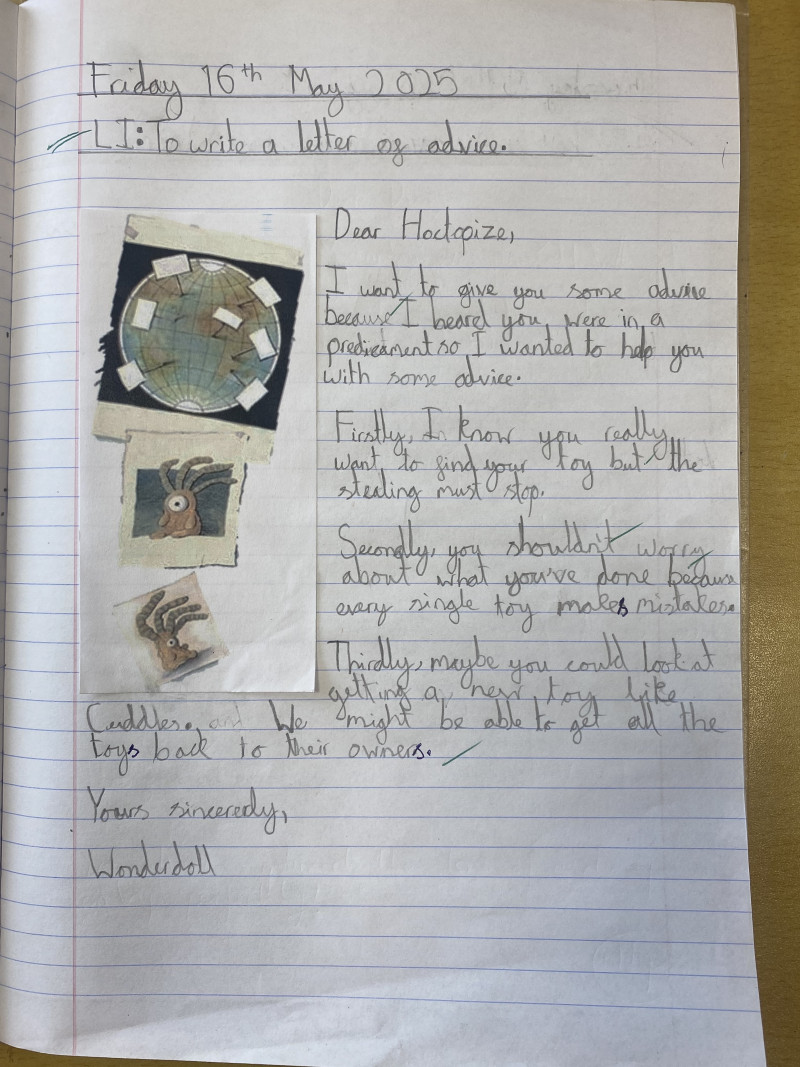 Friday 16th May 2025
LI: To write a letter of advice.
Dear Hoctopize,
I want to give you some advice
because I heard you were in a
predicament so I wanted to help you
with some advice.
Firstly, I know you really
want to find your toy but the
stealing must stop.
Secondly, you shouldn't worry
about what you've done because
every single toy makes mistakes.
Thirdly, maybe you could look at
getting a new toy like
Cuddles. We might be able to get all the
toys back to their owners.
Yours sincerely,
Wonderdoll